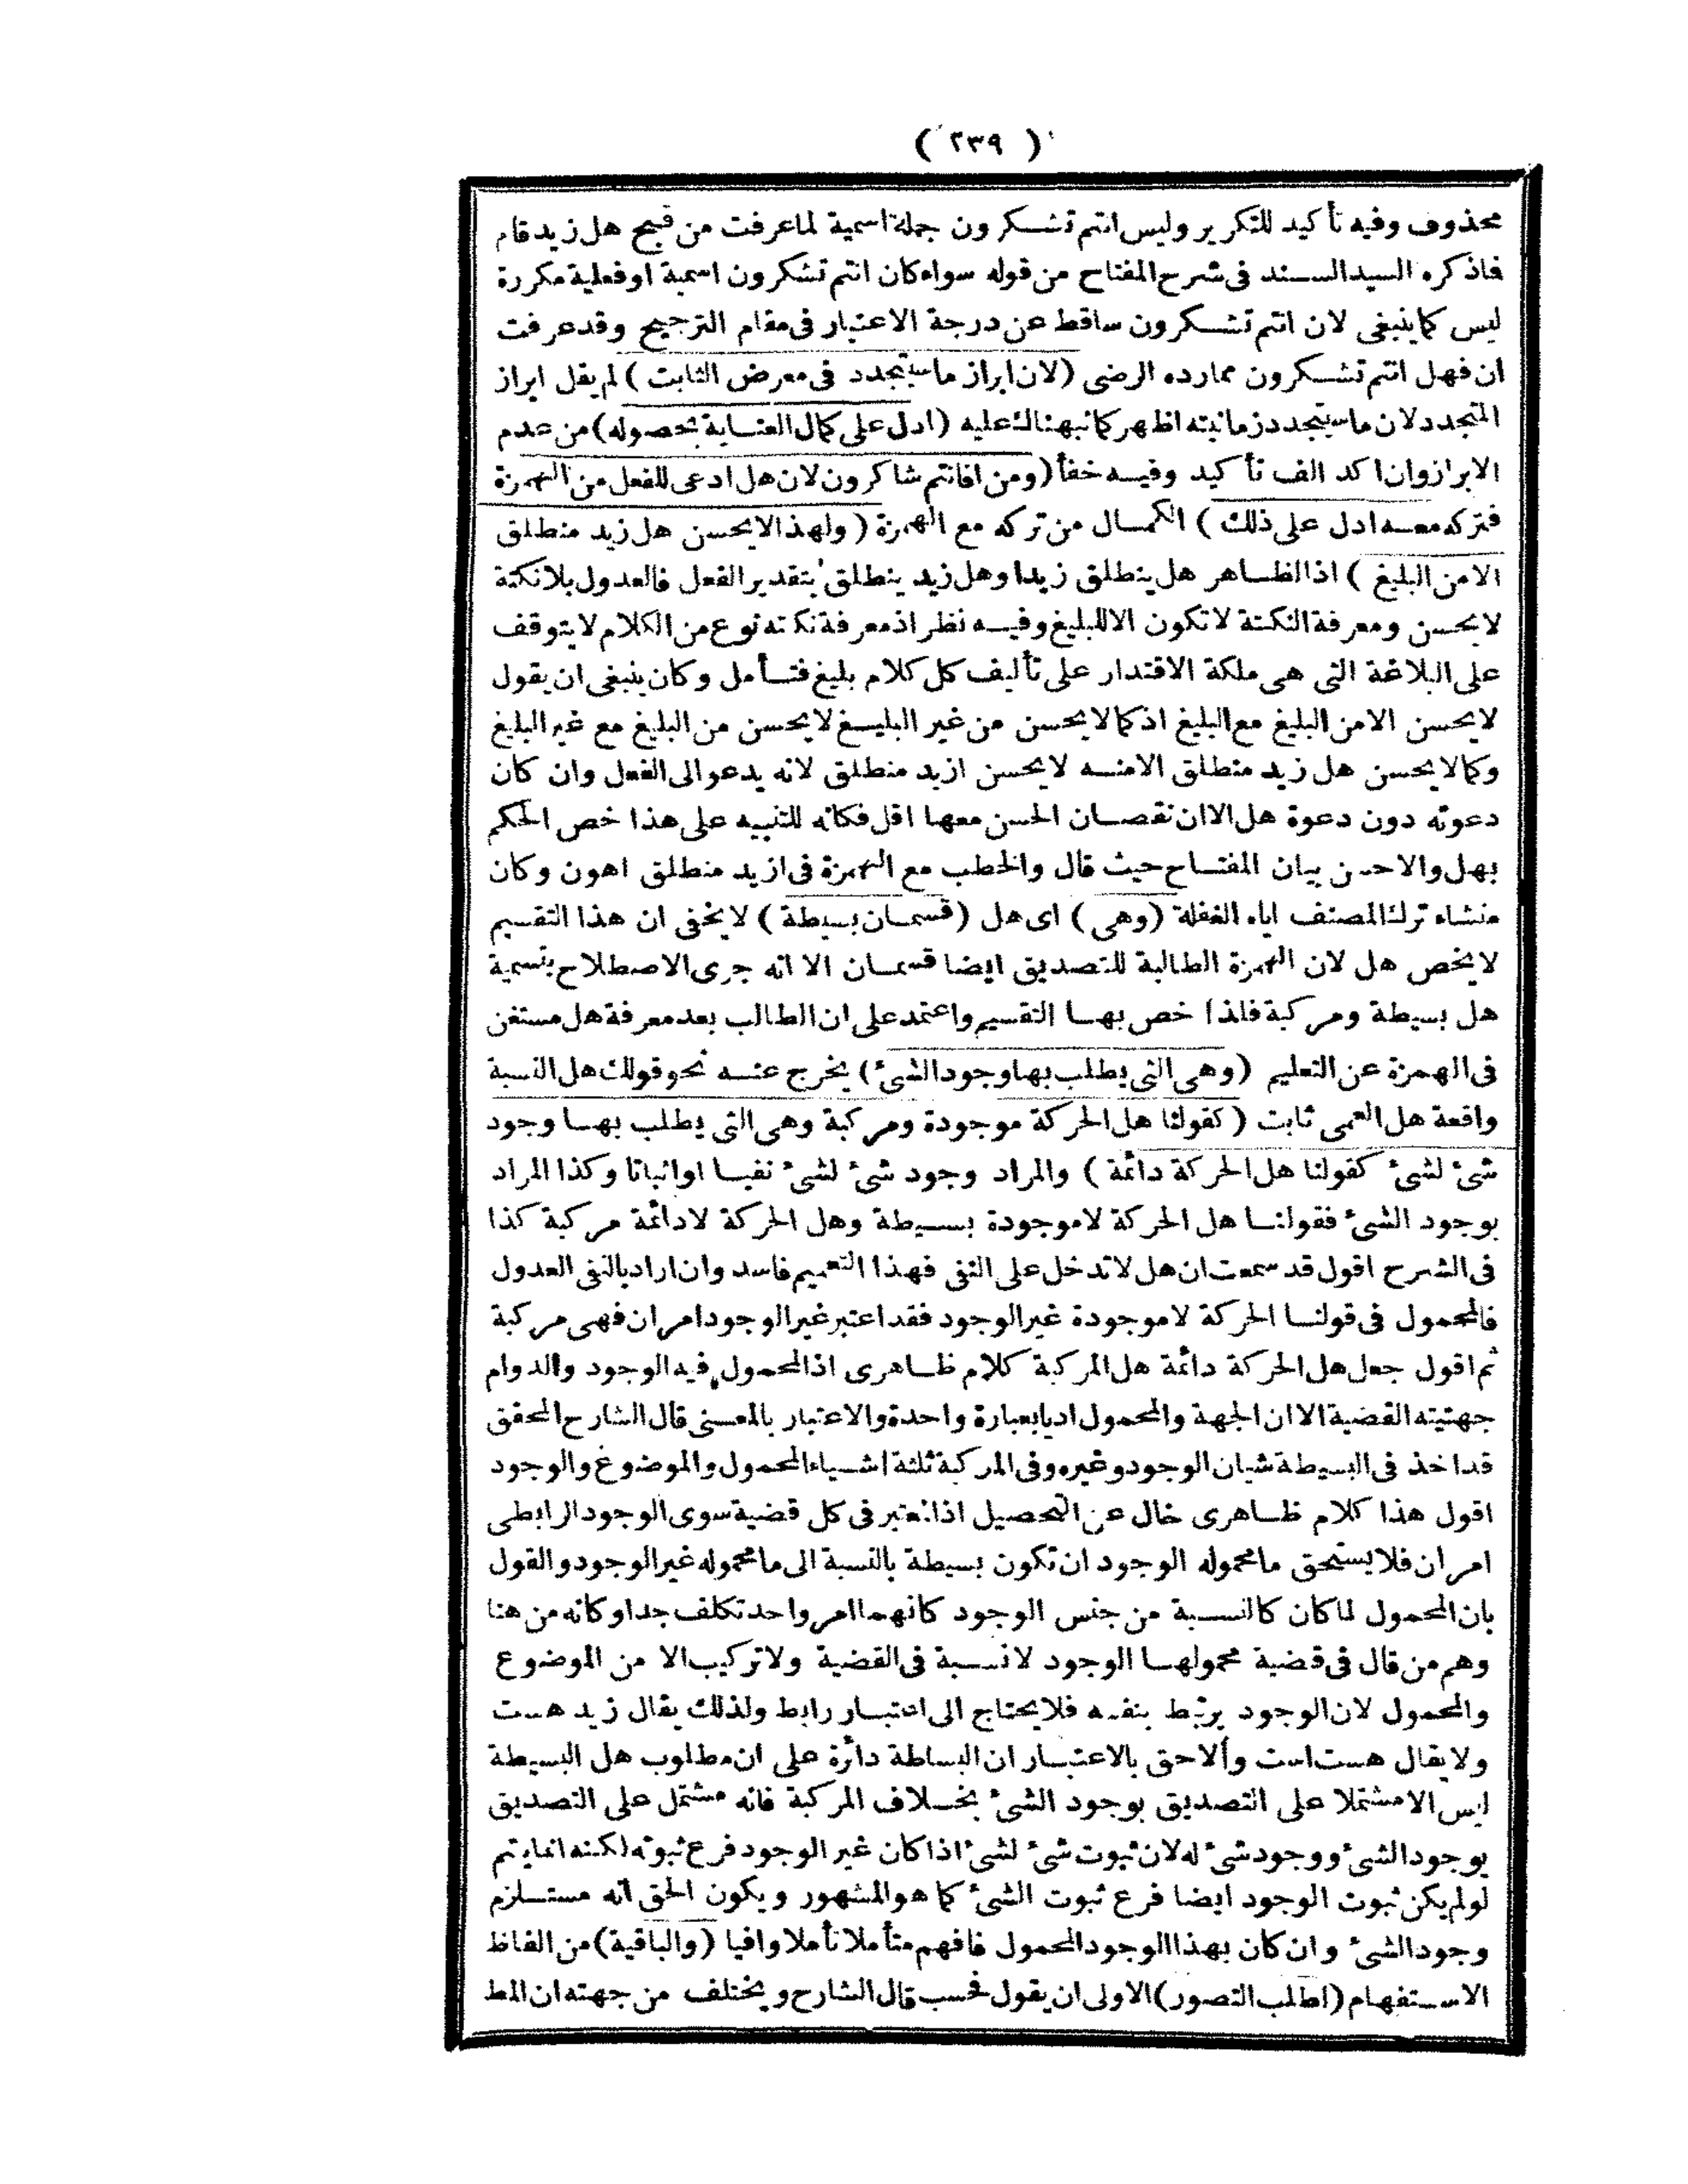 ( ٢٣٩ )
محذوف وفيه تأكيد للتكرير وليس انتم تشكرون جملة اسمية لما عرفت من قبح هل زيد قام
فاذكره السيد السند فى شرح المفتاح من قوله سواء كان انتم تشكرون اسمية او فعلية مكررة
ليس كما ينبغى لان انتم تشكرون ساقط عن درجة الاعتبار فى مقام الترجيح وقد عرفت
ان فهل انتم تشكرون ممارده الرضى (لان ابراز ماسيتجدد فى معرض الثابت) لم يقل ابراز
المتجدد لان ماسيتجدد زمانيته اظهر كمانبهناك عليه (ادل على كمال العناية بحصوله) من عدم
الابراز وان اكد الف تأكيد وفيه خفأ (ومن افانتم شاكرون لان هل ادعى للفعل من الهمزة
فتركه معه ادل على ذلك) الكمال من تركه مع الهمزة (ولهذا لايحسن هل زيد منطلق
الامن البليغ) اذ الظاهر هل ينطلق زيد او هل زيد ينطلق بتقدير الفعل فالعدول بلانكتة
لايحسن ومعرفة النكتة لاتكون الاللبليغ وفيه نظر اذ معرفة نكتة نوع من الكلام لايتوقف
على البلاغة التى هى ملكة الاقتدار على تأليف كل كلام بليغ فتأمل وكان ينبغى ان يقول
لايحسن الامن البليغ مع البليغ اذ كمالايحسن من غير البليغ لايحسن من البليغ مع غير البليغ
وكمالايحسن هل زيد منطلق الامنه لايحسن ازيد منطلق لانه يدعو الى الفعل وان كان
دعوته دون دعوة هل الا ان نقصان الحسن معها اقل فكانه للتنبيه على هذا خص الحكم
بهل والاحسن بيان المفتاح حيث قال والخطب مع الهمزة فى ازيد منطلق اهون وكان
منشاء ترك المصنف اياه الغفلة (وهى) اى هل (قسمان بسيطة) لايخفى ان هذا التقسيم
لايخص هل لان الهمزة الطالبة للتصديق ايضا قسمان الا انه جرى الاصطلاح بتسمية
هل بسيطة ومركبة فلذا خص بها التقسيم واعتمد على ان الطالب بعد معرفة هل مستغن
فى الهمزة عن التعليم (وهى التى يطلب بها وجود الشئ) يخرج عنه نحو قولك هل النسبة
واقعة هل العمى ثابت (كقولنا هل الحركة موجودة ومركبة وهى التى يطلب بها وجود
شئ لشئ كقولنا هل الحركة دائمة) والمراد وجود شئ لشئ نفيا اواثباتا وكذا المراد
بوجود الشئ فقولنا هل الحركة لاموجودة بسيطة وهل الحركة لادائمة مركبة كذا
فى الشرح اقول قد سمعت ان هل لاتدخل على النفى فهذا التعميم فاسد وان اراد بالنفى العدول
فالمحمول فى قولنا الحركة لاموجودة غير الوجود فقد اعتبر غير الوجود امران فهى مركبة
ثم اقول جعل هل الحركة دائمة هل المركبة كلام ظاهرى اذ المحمول فيه الوجود والدوام
جهتيته القضية الا ان الجهة والمحمول اديا بعبارة واحدة والاعتبار بالمعنى قال الشارح المحقق
قد اخذ فى البسيطة شيان الوجود وغيره وفى المركبة ثلثة اشياء المحمول والموضوع والوجود
اقول هذا كلام ظاهرى خال عن التحصيل اذ انعتبر فى كل قضية سوى الوجود الرابطى
امران فلا يستحق مامحموله الوجود ان تكون بسيطة بالنسبة الى مامحموله غير الوجود والقول
بان المحمول لما كان كالنسبة من جنس الوجود كانهما امر واحد تكلف جدا وكانه من هنا
وهم من قال فى قضية محمولها الوجود لانسبة فى القضية ولاتركيب الا من الموضوع
والمحمول لان الوجود يرتبط بنفسه فلايحتاج الى اعتبار رابط ولذلك يقال زيد هست
ولايقال هست است وألاحق بالاعتبار ان البساطة دائرة على ان مطلوب هل البسيطة
ليس الامشتملا على التصديق بوجود الشئ بخلاف المركبة فانه مشتمل على التصديق
بوجود الشئ ووجود شئ له لان ثبوت شئ لشئ اذا كان غير الوجود فرع ثبوته لكنه انمايتم
لولم يكن ثبوت الوجود ايضا فرع ثبوت الشئ كما هو المشهور ويكون الحق انه مستلزم
وجود الشئ وان كان بهذا الوجود المحمول فافهم متأملا تأملا وافيا (والباقية) من الفاظ
الاستفهام (لطلب التصور) الاولى ان يقول فحسب قال الشارح ويختلف من جهته ان المط